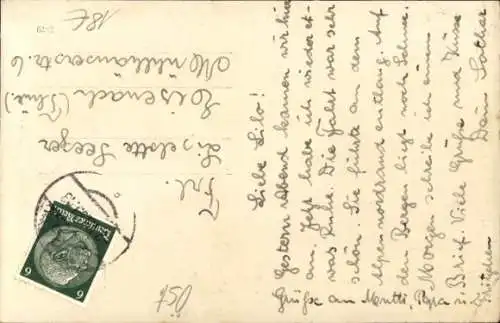 Liebe Lilo!
Gestern Abend kamen wir hier
an. Jetzt habe ich wieder et-
was Ruhe. Die Fahrt war so
schön. Sie führte an dem
Alpennordrand entlang. Auf
den Bergen liegt noch Schnee.
Morgen schreibe ich einen
Brief. Viele Grüße und Küsse
Dein Lothar
Grüße an Mutti, Papa u.
Frl.
Liselotte Seeger
Eisenach (Thür.)
Mühlhäuserstr. 6
Deutsches Reich
6 6
18€
Öst